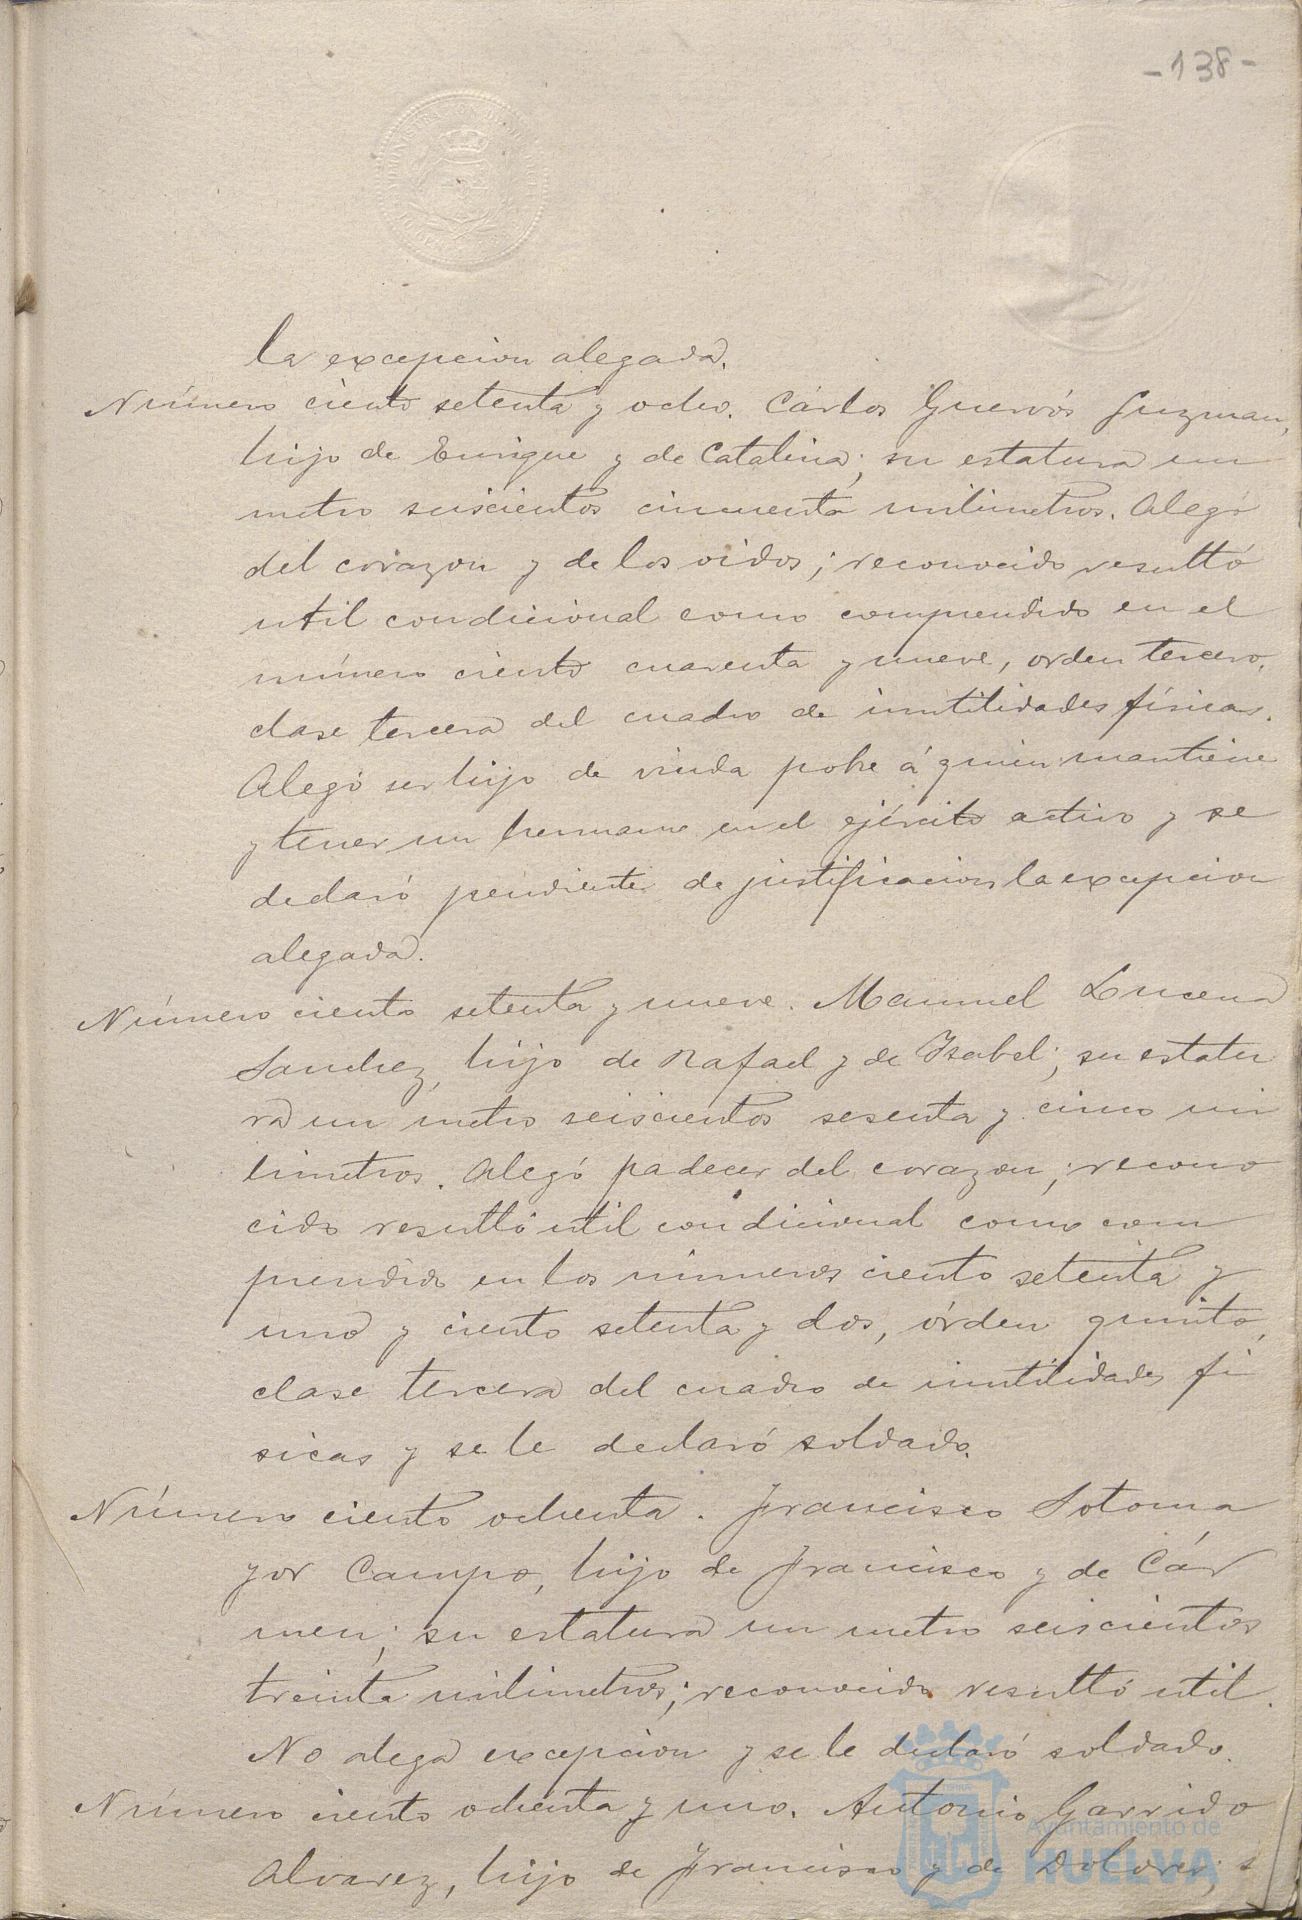 -138-
la excepcion alegada.
Número ciento setenta y ocho. Cárlos Guervós Guzman,
hijo de Enrique y de Catalina; su estatura un
metro seiscientos cincuenta milimetros. Alegó
del corazon y de los oidos; reconocido resultó
util condicional como comprendido en el
número ciento cuarenta y nueve, orden tercero,
clase tercera del cuadro de inutilidades físicas.
Alegó ser hijo de viuda pobre á quien mantiene
y tener un hermano en el ejército activo y se
declaró pendiente de justificacion la excepcion
alegada.
Número ciento setenta y nueve. Manuel Lucena
Sanchez, hijo de Rafael y de Isabel; su estatu
ra un metro seiscientos sesenta y cinco mi
limetros. Alegó padecer del corazon; recono
cido resultó util condicional como com
prendido en los números ciento setenta y
uno y ciento setenta y dos, órden quinto,
clase tercera del cuadro de inutilidades fi
sicas y se le declaró soldado.
Número ciento ochenta. Francisco Sotoma
yor Campo, hijo de Francisco y de Cár
men; su estatura un metro seiscientos
treinta milimetros; reconocido resultó util.
No alega excepcion y se le declaró soldado.
Número ciento ochenta y uno. Antonio Garrido
Alvarez, hijo de Francisco y de Dolores; s
Ayuntamiento de
HUELVA